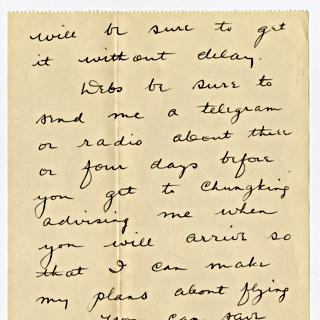 will be sure to get
it without delay.
Debs be sure to
send me a telegram
or radio about three
or four days before
you get to Chungking
advising me when
you will arrive so
that I can make
my plans about flying
You can save